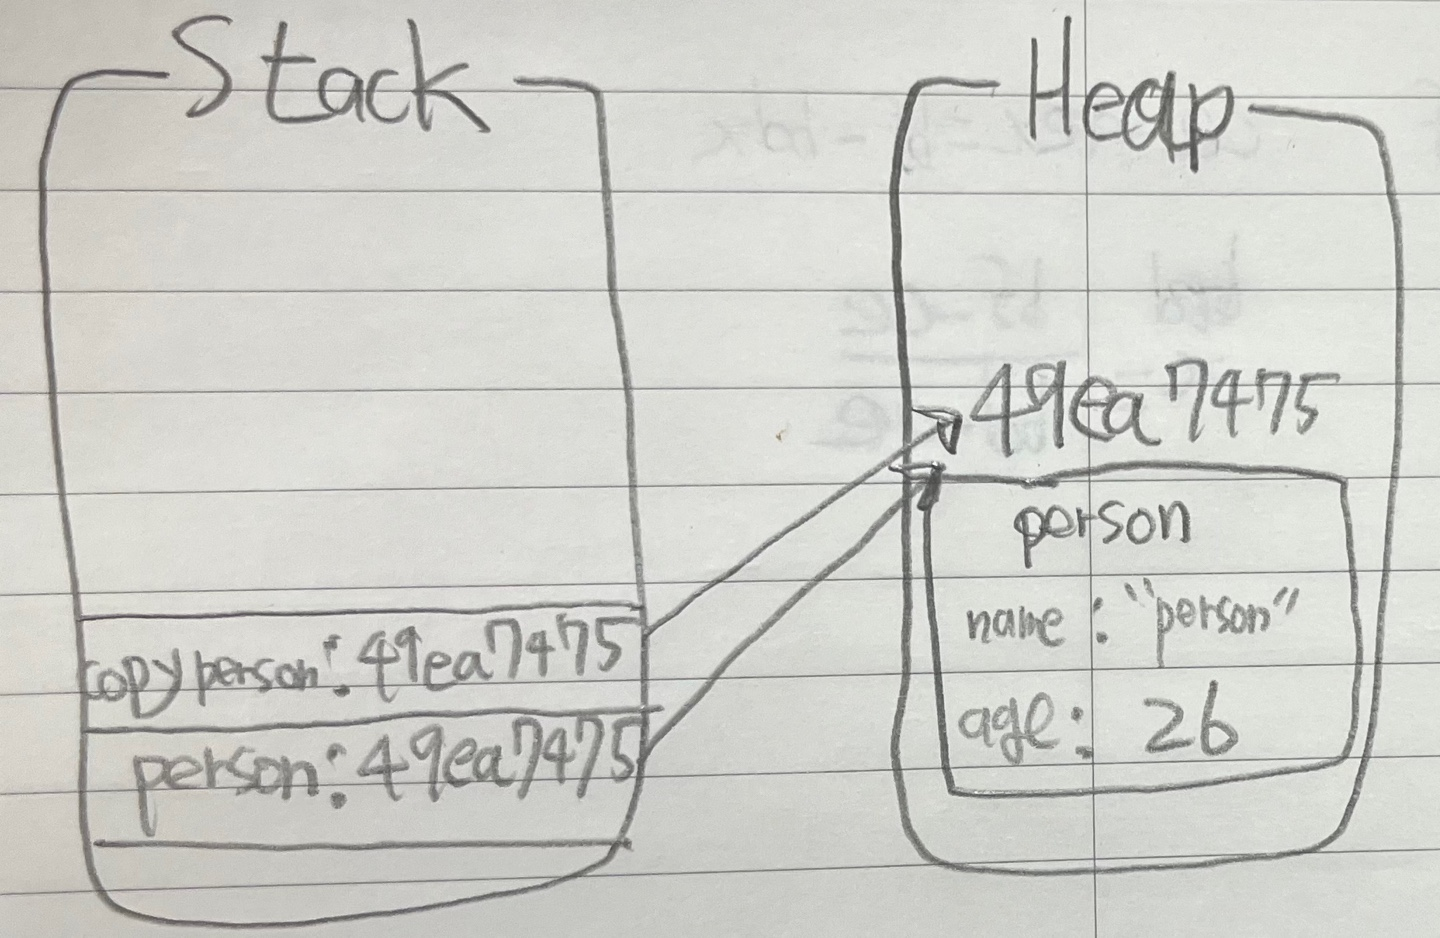 Stack
copyperson: 49ea7475
person: 49ea7475
Heap
49ea7475
person
name: "person"
age: 26